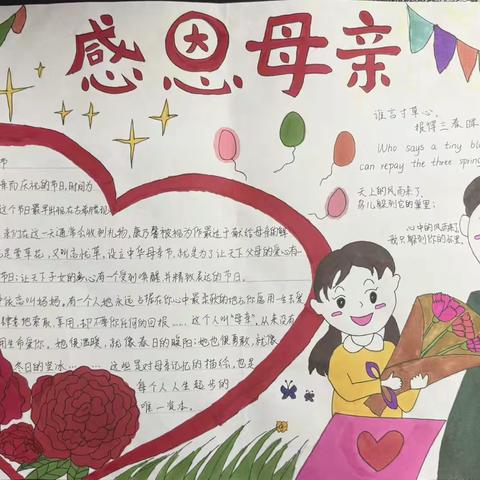 感恩母亲
谁言寸草心,
报得三春晖
Who says a tiny bl
can repay the three spring
天上的风雨来了,
鸟儿躲到它的巢里;
心中的风雨来了,
我只躲到你的怀里.
节
亲而庆祝的节日,时间为
这个节日最早出现在古希腊
亲们在这一天通常会收到礼物,康乃馨被视为作最适于献给母亲的鲜
是萱草花,又叫忘忧草,设立中华母亲节,就是为了让天下父母的爱心有
节日;让天下子女的爱心有一个受到唤醒并精致表达的节日。
乐园叫妈妈,有一个人她永远占据在你心中最柔软的地方你愿用一生去爱
肆意地索取、享用,却不要你任何的回报……这个人叫"母亲",从来没有
用生命爱你。她很温暖,就像春日的暖阳;她也很勇敢,就像
冬日的坚冰………这些是对母亲记忆的描绘,也是
每个人人生起步的
唯一资本。